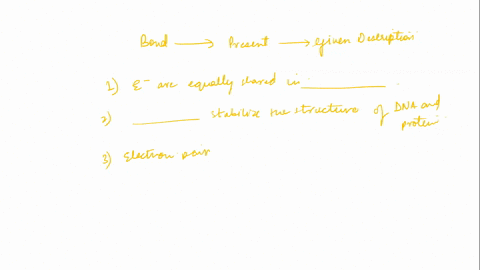 Bond → Present → given Description
1) E⁻ are equally shared in ________ .
2) ________ stabilize the structure of DNA and protein
3) Electron pair